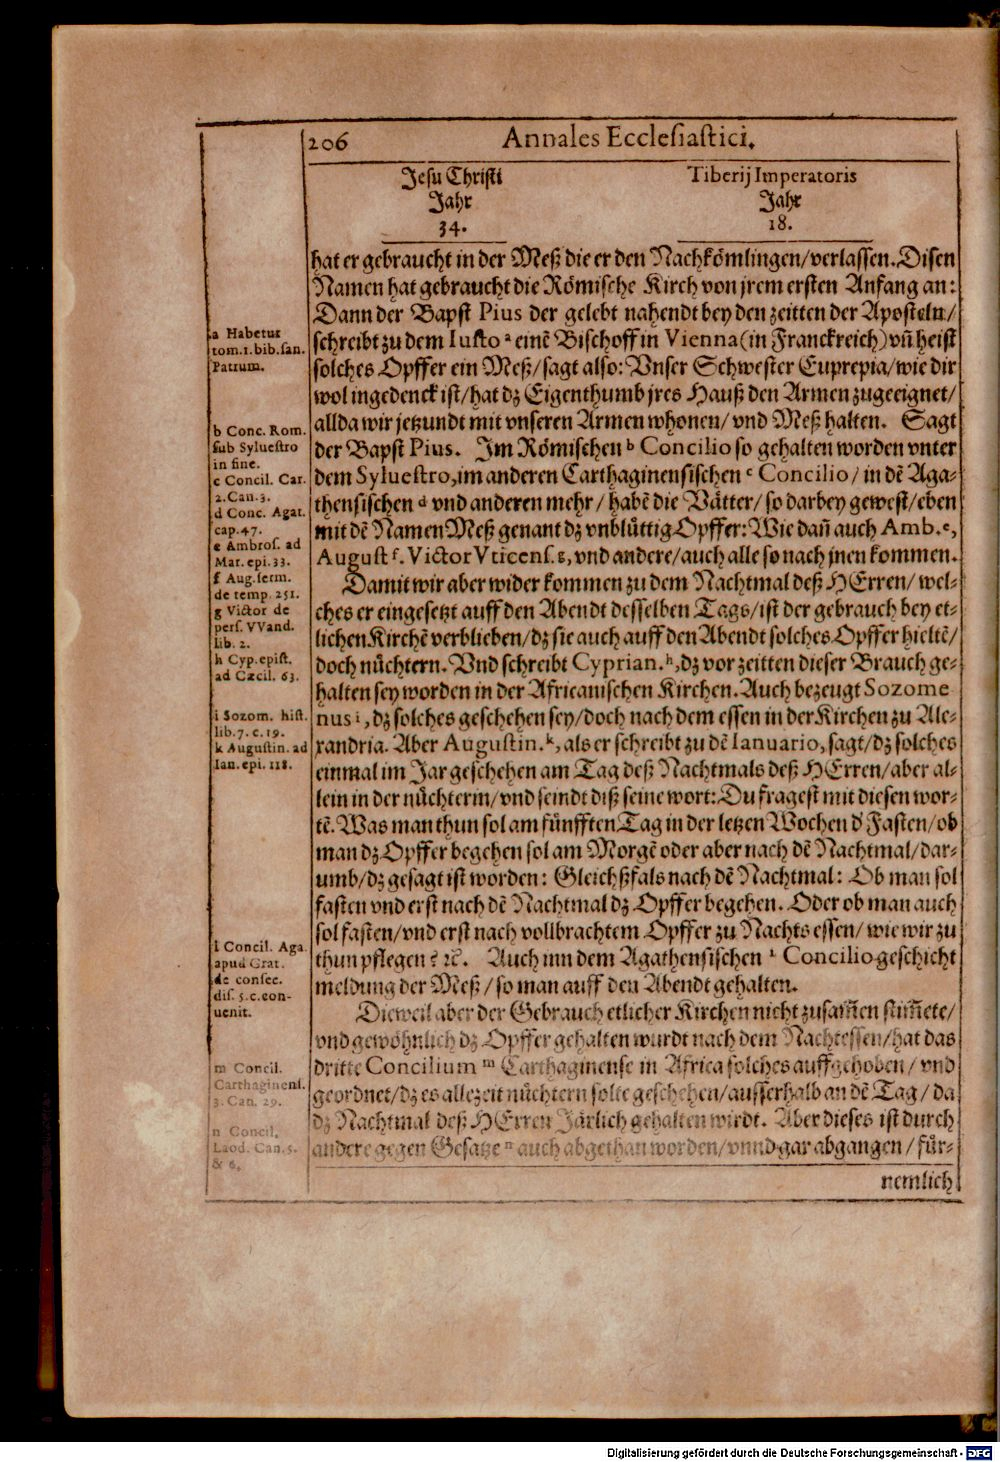 206 Annales Ecclesiastici.
Jesu Christi
Jahr
34.
Tiberij Imperatoris
Jahr
18.
hat er gebraucht in der Meß die er den Nachkömlingen/verlassen. Disen
Namen hat gebraucht die Römische Kirch von jrem ersten Anfang an:
Dann der Bapst Pius der gelebt nahendt bey den zeitten der Aposteln/
schreibt zu dem Iusto ᵃ einē Bischoff in Vienna (in Franckreich) vñ heist
solches Opffer ein Meß/sagt also: Vnser Schwester Euprepia/wie dir
wol ingedenck ist/hat dz Eigenthumb jres Hauß den Armen zugeeignet/
allda wir jetzundt mit vnseren Armen whonen/vnd Meß halten. Sagt
der Bapst Pius. Im Römischen ᵇ Concilio so gehalten worden vnter
dem Syluestro, im anderen Carthaginensischen ᶜ Concilio/ in dē Aga-
thensischen ᵈ vnd anderen mehr/ habē die Vätter/ so darbey gewest/eben
mit dē Namen Meß genant dz vnblüttig Opffer: Wie dañ auch Amb. ᵉ,
August ᶠ. Victor Vticens. ᵍ, vnd andere/auch alle so nach jnen kommen.
Damit wir aber wider kommen zu dem Nachtmal deß HErren/ wel-
ches er eingesetzt auff den Abendt desselben Tags/ist der gebrauch bey et-
lichen Kirchē verblieben/dz sie auch auff den Abendt solches Opffer hieltē/
doch nüchtern. Vnd schreibt Cyprian. ʰ, dz vor zeitten dieser Brauch ge-
halten sey worden in der Africanischen Kirchen. Auch bezeugt Sozome
nus ⁱ, dz solches geschehen sey/doch nach dem essen in der Kirchen zu Ale-
xandria. Aber Augustin. ᵏ, als er schreibt zu dē Ianuario, sagt/dz solches
einmal im Jar geschehen am Tag deß Nachtmals deß HErren/aber al-
lein in der nüchterin/vnd seindt diß seine wort: Du fragest mit diesen wor-
tē. Was man thun sol am fünfften Tag in der letzen Wochen d' Fasten/ob
man dz Opffer begehen sol am Morgē oder aber nach dē Nachtmal/dar-
umb/dz gesagt ist worden: Gleichßfals nach dē Nachtmal: Ob man sol
fasten vnd erst nach dē Nachtmal dz Opffer begehen. Oder ob man auch
sol fasten/vnd erst nach vollbrachtem Opffer zu Nachts essen/ wie wir zu
thun pflegen? ꝛc. Auch inn dem Agathensischen ˡ Concilio geschicht
meldung der Meß/so man auff den Abendt gehalten.
Dieweil aber der Gebrauch etlicher Kirchen nicht zusam̄en stim̄ete/
vnd gewöhnlich dz Opffer gehalten wurdt nach dem Nachtessen/hat das
dritte Concilium ᵐ Carthaginense in Africa solches auffgehoben/ vnd
geordnet/dz es allezeit nüchtern solte geschehen/ausserhalb an dē Tag/ da
dz Nachtmal deß HErren Järlich gehalten wirdt. Aber dieses ist durch
andere gegen Gesatze ⁿ auch abgethan worden/vnnd gar abgangen/ für-
nemlich
a Habetur
tom.1.bib.san.
Patrum.
b Conc. Rom.
sub Syluestro
in fine.
c Concil. Car.
2. Can. 3.
d Conc. Agat.
cap. 47.
e Ambros. ad
Mar. epi. 33.
f Aug. serm.
de temp. 251.
g Victor de
pers. VVand.
lib. 2.
h Cyp. epist.
ad Cæcil. 63.
i Sozom. hist.
lib. 7. c. 19.
k Augustin. ad
Ian. epi. 118.
l Concil. Aga.
apud Grat.
de consec.
dis. 5. c. con-
uenit.
m Concil.
Carthaginens.
3. Can. 29.
n Concil.
Laod. Can. 5.
& 6.
Digitalisierung gefördert durch die Deutsche Forschungsgemeinschaft - DFG